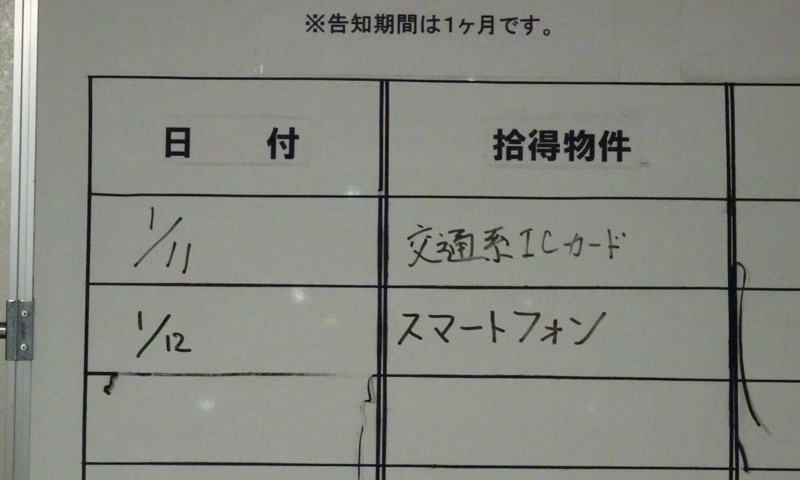 ※告知期間は1ヶ月です。
日 付 拾得物件
1/11 交通系ICカード
1/12 スマートフォン